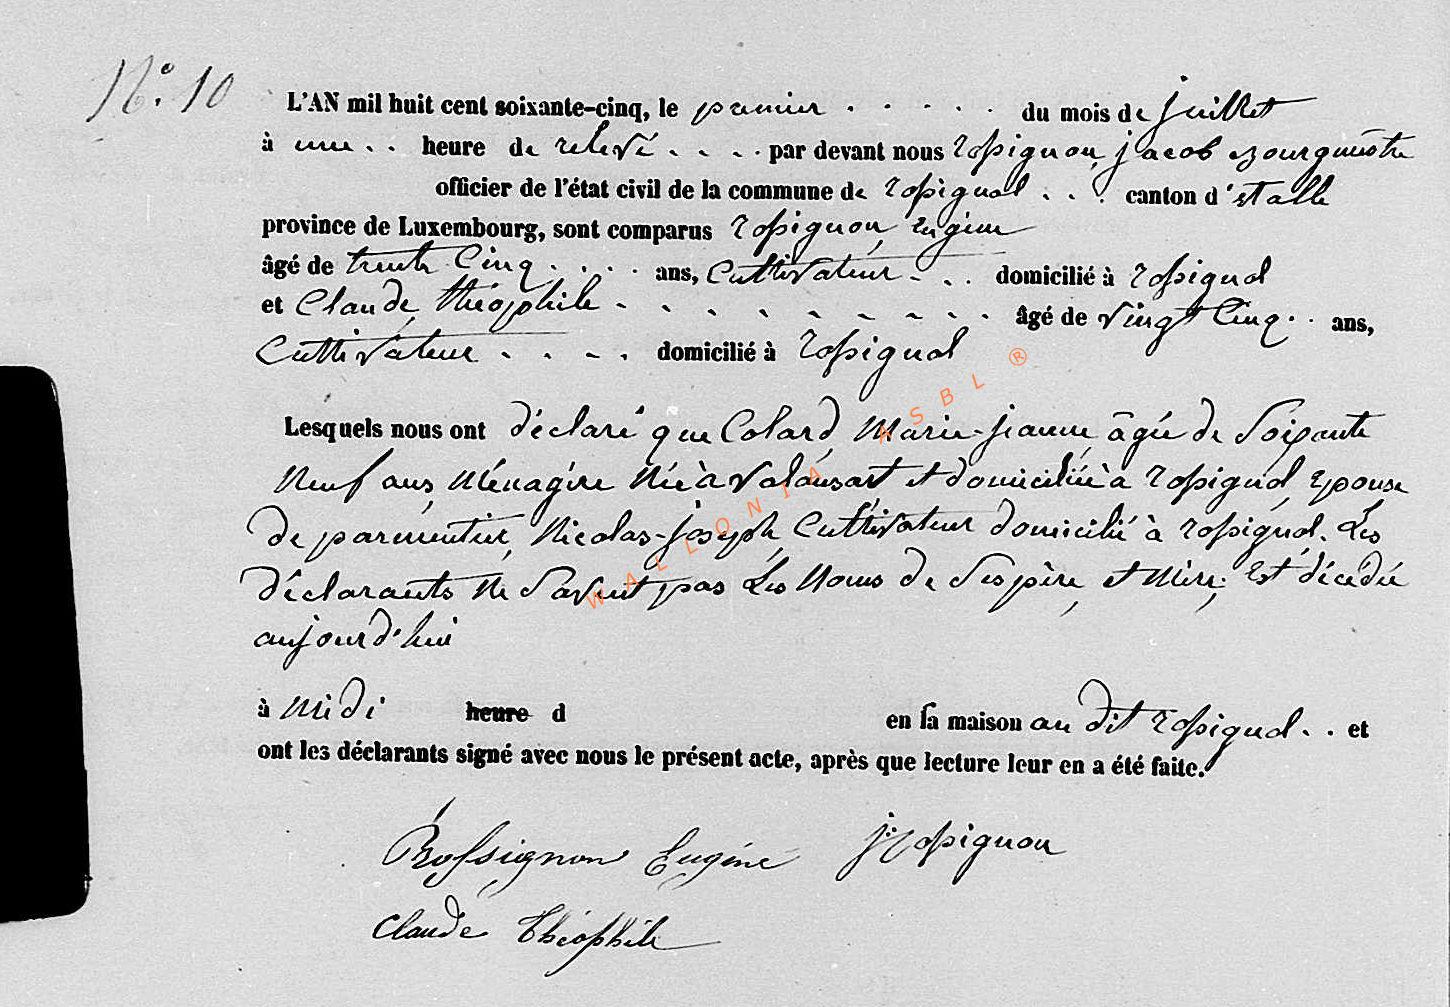 N.° 10
L'AN mil huit cent soixante-cinq, le premier . . . . . du mois de juillet
à une . . heure de relevé . . . . par devant nous rossignon, jacob Bourgmestre
officier de l'état civil de la commune de rossignol . . . canton d'Etalle
province de Luxembourg, sont comparus rossignon, Eugène
âgé de trente Cinq . . . . ans, Cultivateur . . . domicilié à rossignol
et Claude, théophile . . . . . . . . . . âgé de vingt Cinq . . ans,
Cultivateur . . . . domicilié à rossignol
Lesquels nous ont déclaré que Colard, Marie-jeanne âgée de Soixante
Neuf ans, Ménagère Née à valansart et domiciliée à rossignol, Epouse
de parmentier, Nicolas-joseph, Cultivateur domicilié à rossignol. Les
déclarants Ne Savent pas Les Noms de Ses père, et Mère; Est décédée
aujourd'hui
à Midi heure d en sa maison au dit rossignol . . et
ont les déclarants signé avec nous le présent acte, après que lecture leur en a été faite.
Rossignon Eugène j: rossignon
Claude Théophile
WALLONIA ASBL ®